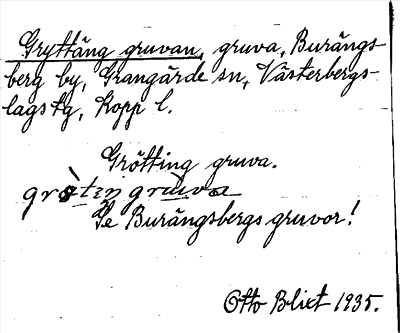 Gryttäng gruvan, gruva, Burängs-
berg by, Grangärde sn, Västerbergs-
lags tg, Kopp l.
Grötting gruva.
grò̀tiŋ gruva
Se Burängsbergs gruvor!
Otto Blixt 1935.